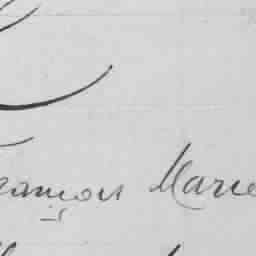 rançois Marie